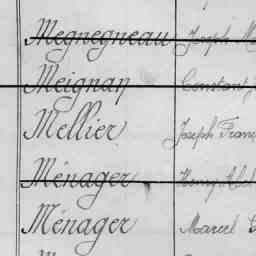 Megnegneau Joseph
Meignan Constant
Mellier Joseph Franç
Ménager Henry
Ménager Marcel